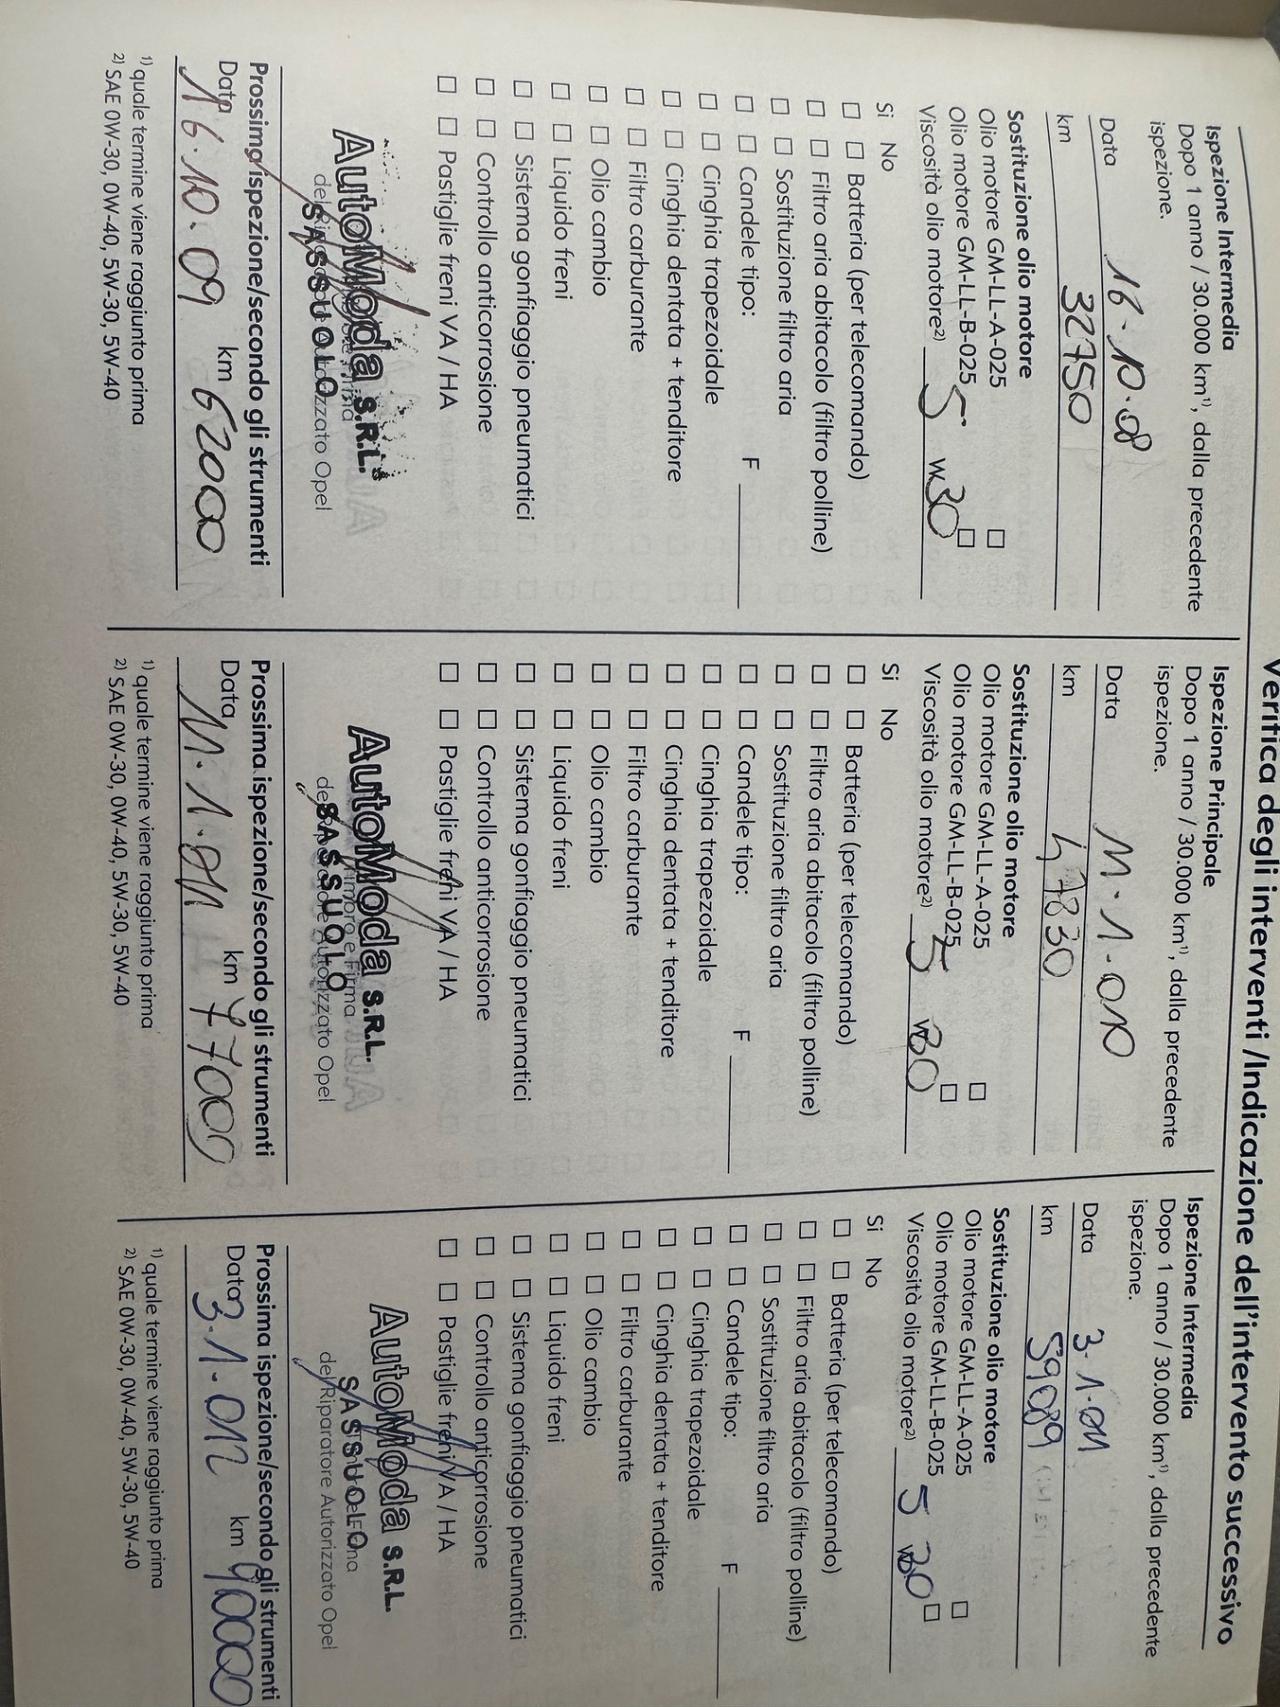 Verifica degli interventi /Indicazione dell'intervento successivo
Ispezione Intermedia
Dopo 1 anno / 30.000 km¹⁾, dalla precedente
ispezione.
Data 16.10.08
km 32750
Sostituzione olio motore
Olio motore GM-LL-A-025 □
Olio motore GM-LL-B-025 □
Viscosità olio motore²⁾ 5 W30
Si No
□ □ Batteria (per telecomando)
□ □ Filtro aria abitacolo (filtro polline)
□ □ Sostituzione filtro aria
□ □ Candele tipo: F
□ □ Cinghia trapezoidale
□ □ Cinghia dentata + tenditore
□ □ Filtro carburante
□ □ Olio cambio
□ □ Liquido freni
□ □ Sistema gonfiaggio pneumatici
□ □ Controllo anticorrosione
□ □ Pastiglie freni VA / HA
AutoModa S.R.L.
SASSUOLO
del Riparatore Autorizzato Opel
Prossima ispezione/secondo gli strumenti
Data 16.10.09 km 62000
¹⁾ quale termine viene raggiunto prima
²⁾ SAE 0W-30, 0W-40, 5W-30, 5W-40
Ispezione Principale
Dopo 1 anno / 30.000 km¹⁾, dalla precedente
ispezione.
Data 11.1.010
km 47830
Sostituzione olio motore
Olio motore GM-LL-A-025 □
Olio motore GM-LL-B-025 □
Viscosità olio motore²⁾ 5 W30
Si No
□ □ Batteria (per telecomando)
□ □ Filtro aria abitacolo (filtro polline)
□ □ Sostituzione filtro aria
□ □ Candele tipo: F
□ □ Cinghia trapezoidale
□ □ Cinghia dentata + tenditore
□ □ Filtro carburante
□ □ Olio cambio
□ □ Liquido freni
□ □ Sistema gonfiaggio pneumatici
□ □ Controllo anticorrosione
□ □ Pastiglie freni VA / HA
AutoModa S.R.L.
Timbro e Firma
SASSUOLO
del Riparatore Autorizzato Opel
Prossima ispezione/secondo gli strumenti
Data 11.1.011 km 77000
¹⁾ quale termine viene raggiunto prima
²⁾ SAE 0W-30, 0W-40, 5W-30, 5W-40
Ispezione Intermedia
Dopo 1 anno / 30.000 km¹⁾, dalla precedente
ispezione.
Data 3.1.011
km 59089
Sostituzione olio motore
Olio motore GM-LL-A-025 □
Olio motore GM-LL-B-025 □
Viscosità olio motore²⁾ 5 W30
Si No
□ □ Batteria (per telecomando)
□ □ Filtro aria abitacolo (filtro polline)
□ □ Sostituzione filtro aria
□ □ Candele tipo: F
□ □ Cinghia trapezoidale
□ □ Cinghia dentata + tenditore
□ □ Filtro carburante
□ □ Olio cambio
□ □ Liquido freni
□ □ Sistema gonfiaggio pneumatici
□ □ Controllo anticorrosione
□ □ Pastiglie freni VA / HA
AutoModa S.R.L.
SASSUOLO
del Riparatore Autorizzato Opel
Prossima ispezione/secondo gli strumenti
Data 3.1.012 km 90000
¹⁾ quale termine viene raggiunto prima
²⁾ SAE 0W-30, 0W-40, 5W-30, 5W-40